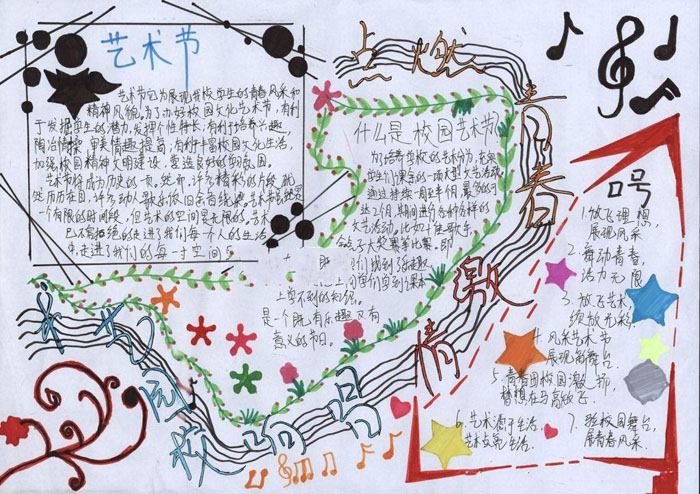 艺术节
艺术节它为展现我校学生的青春风采和
精神风貌。为了办好校园文化艺术节,有利
于发掘学生的潜力,发挥个性特长,有利于培养兴趣,
陶冶情操,审美情趣提高,有利于丰富校园文化生活,
加强校园精神文明建设,营造良好的氛围。
艺术节将成为历史的一页。然而,许多精彩的片段就
然历历在目,许多动人歌声依旧余音绕梁。艺术节虽然是
一个有限的时间段,但艺术的空间是无限的,艺术
已不容拒绝的走进了我们每一个人的生活
走进了我们的每一寸空间
点燃青春激情
什么是校园艺术节
为培养学校的艺术分为,充实
学生们课余的一项大型文艺活动
通过持续一周至半个月,最多的可
达2个月,期间进行各种各样的
文艺活动,比如十佳歌手、
大奖赛等比赛,即
上学不到的知识。
是一个既有乐趣又有
意义的节日。
口号
1.放飞理想,
展现风采
2.舞动青春,
活力无限
3.放飞艺术
绽放光彩.
4.风采艺术节
展现新舞台
5.青春因校园激扬,
梦想在马高放飞.
6.艺术源于生活,
艺术点亮生活.
7.验校园舞台,
展青春风采.
艺句
校